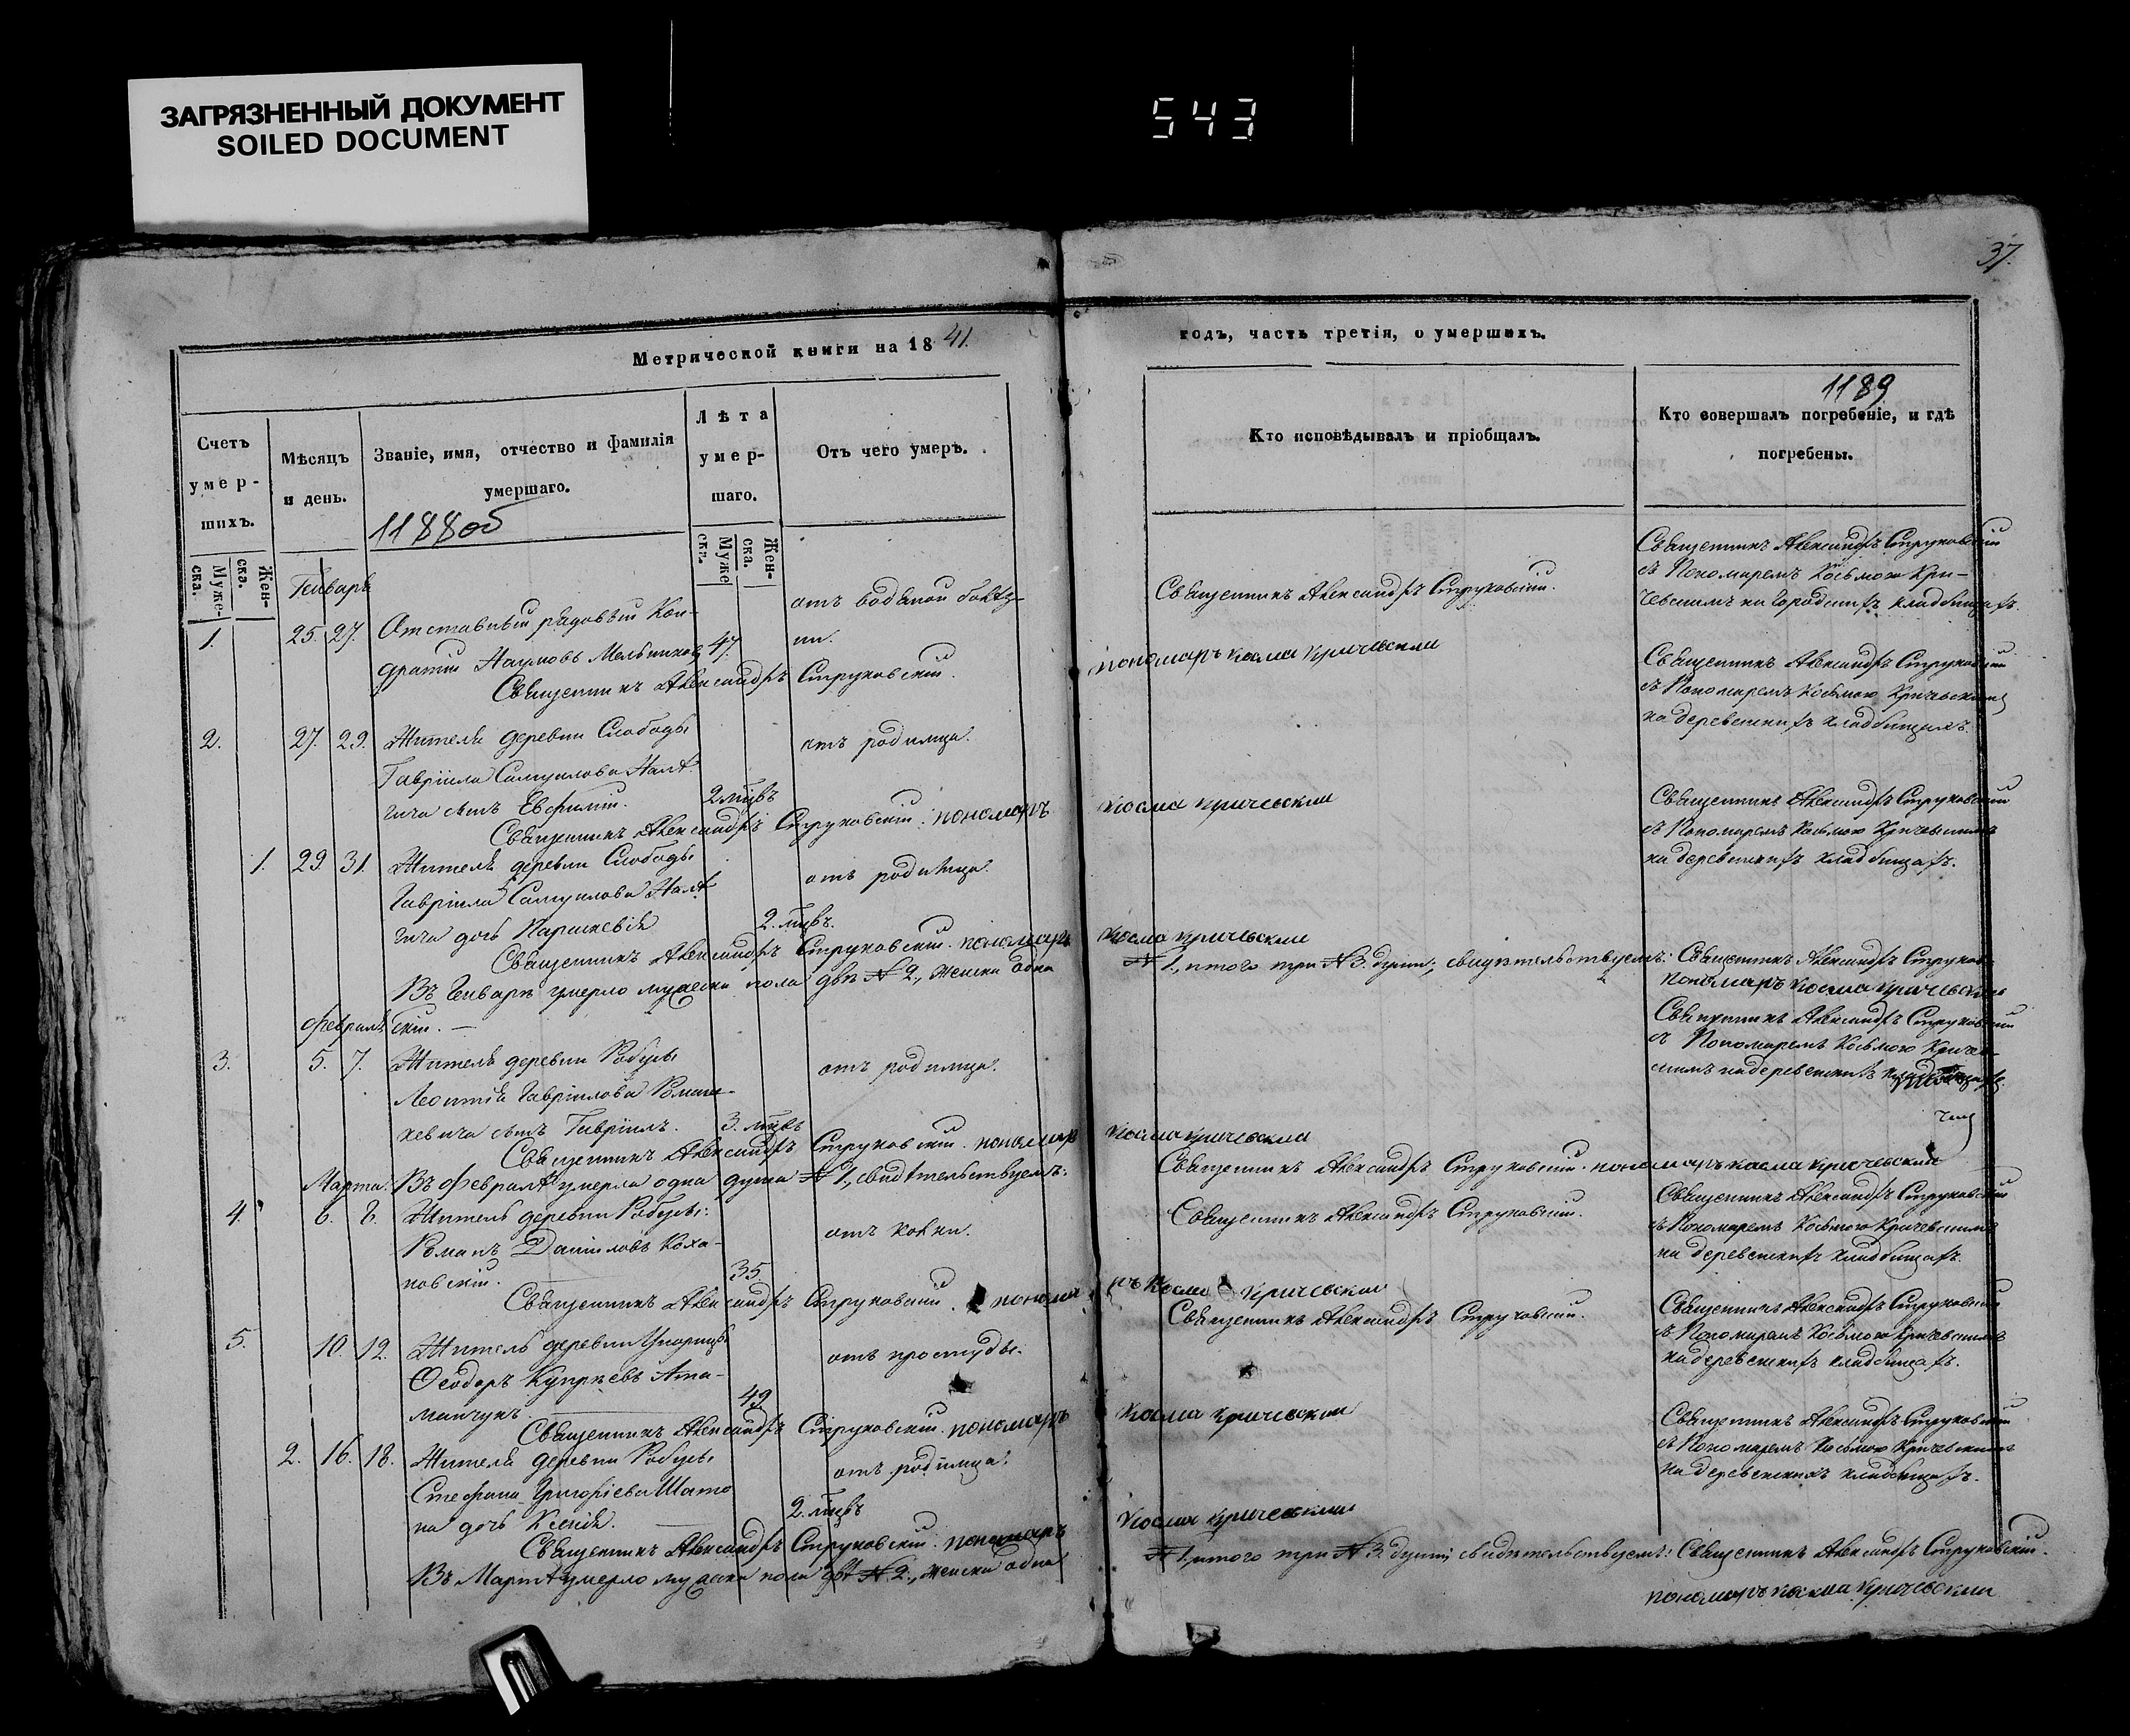 ЗАГРЯЗНЕННЫЙ ДОКУМЕНТ
SOILED DOCUMENT
543
37.
Метрической книги на 18 41.
годъ, часть третія, о умершихъ.
Счетъ умер-шихъ.
Муже-ска.
Жен-ска.
Мѣсяцъ и день.
Званіе, имя, отчество и фамилія умершаго.
1188об
Лѣта умер-шаго.
Муже-ска.
Жен-ска.
Отъ чего умеръ.
Кто исповѣдывалъ и пріобщалъ.
1189
Кто совершалъ погребеніе, и гдѣ погребены.
Генварь
1. 25. 27. Отставный рядовый Кон-
дратій Наумовъ Мельников 47.
отъ водяной болѣз-
ни.
Священникъ Александръ Струковскій.
Священникъ Александръ Струковскій
съ Пономаремъ Косьмою Кри-
чевскимъ на Городскихъ кладбищахъ.
Священникъ Александръ Струковскій.
пономаръ косма кричевскии
2. 27. 29. Жителя деревни Слободы
Гавріила Самуилова
сынъ Евфимій. 2 мцвъ
отъ родимца.
Священникъ Александръ Струковскій
съ Пономаремъ Косьмою Кричевскимъ
на деревенскихъ кладбищахъ.
Священникъ Александръ Струковскій. пономаръ
косма кричевскии
1. 29 31. Жителя деревни Слободы
Гавріила Самуилова
дочь Параскевія 2. мцвъ.
отъ родимца.
Священникъ Александръ Струковскій
съ Пономаремъ Косьмою Кричевскимъ
на деревенскихъ кладбищахъ.
Священникъ Александръ Струковскій. пономаръ
косма кричевскии
Въ Генварѣ умерло мужеска пола двѣ № 2., женска одна
№ 1., итого три № 3. души, свидѣтельствуемъ: Священникъ Александръ Струков-
скій.
пономаръ косма кричевскии
Февраль
3. 5. 7. Жителя деревни
Леонтія Гавріилова Рома-
невича сынъ Гавріилъ. 3. мцвъ
отъ родимца.
Священникъ Александръ Струковскій
съ Пономаремъ Косьмою Кричев-
скимъ на деревенскихъ кладбищахъ.
Священникъ Александръ Струковскій. пономаръ
косма кричевскии
Въ Февралѣ умерла одна душа № 1., свидѣтельствуемъ:
Священникъ Александръ Струковскій. пономаръ косма кричевскии
Марта.
4. 6. 8. Житель деревни
Романъ Даніиловъ Коха-
новскій. 35
отъ колки.
Священникъ Александръ Струковскій.
Священникъ Александръ Струковскій
съ Пономаремъ Косьмою Кричевскимъ
на деревенскихъ кладбищахъ.
Священникъ Александръ Струковскій. понома
ръ косма кричевскии
5. 10. 12. Житель деревни
Ѳеодоръ Ата-
манчукъ. 49
отъ простуды.
Священникъ Александръ Струковскій.
Священникъ Александръ Струковскій
съ Пономаремъ Косьмою Кричевскимъ
на деревенскихъ кладбищахъ.
Священникъ Александръ Струковскій. пономаръ
косма кричевскии
2. 16. 18. Жителя деревни
Стефана Григоріева
дочь Ксенія. 2. мцвъ
отъ родимца.
Священникъ Александръ Струковскій
съ Пономаремъ Косьмою Кричевскимъ
на деревенскихъ кладбищахъ.
Священникъ Александръ Струковскій. пономаръ
косма кричевскии
Въ Мартѣ умерло мужеска пола двѣ № 2., женска одна
№ 1, итого три № 3. души свидѣтельствуемъ: Священникъ Александръ Струковскій.
пономаръ косма кричевскии